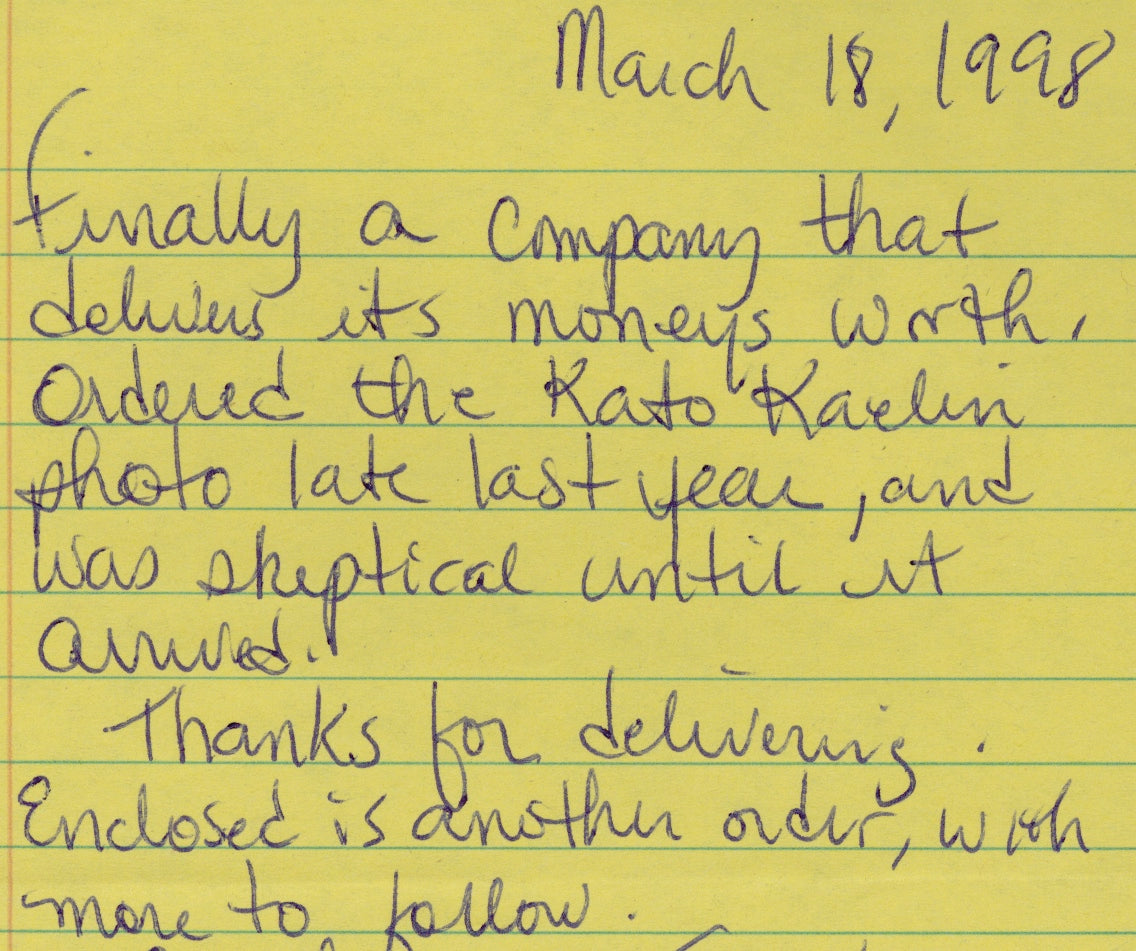 March 18, 1998
Finally a company that
delivers its moneys worth.
Ordered the Kato Kaelin
photo late last year, and
was skeptical until it
arrived.
Thanks for delivering.
Enclosed is another order, with
more to follow.